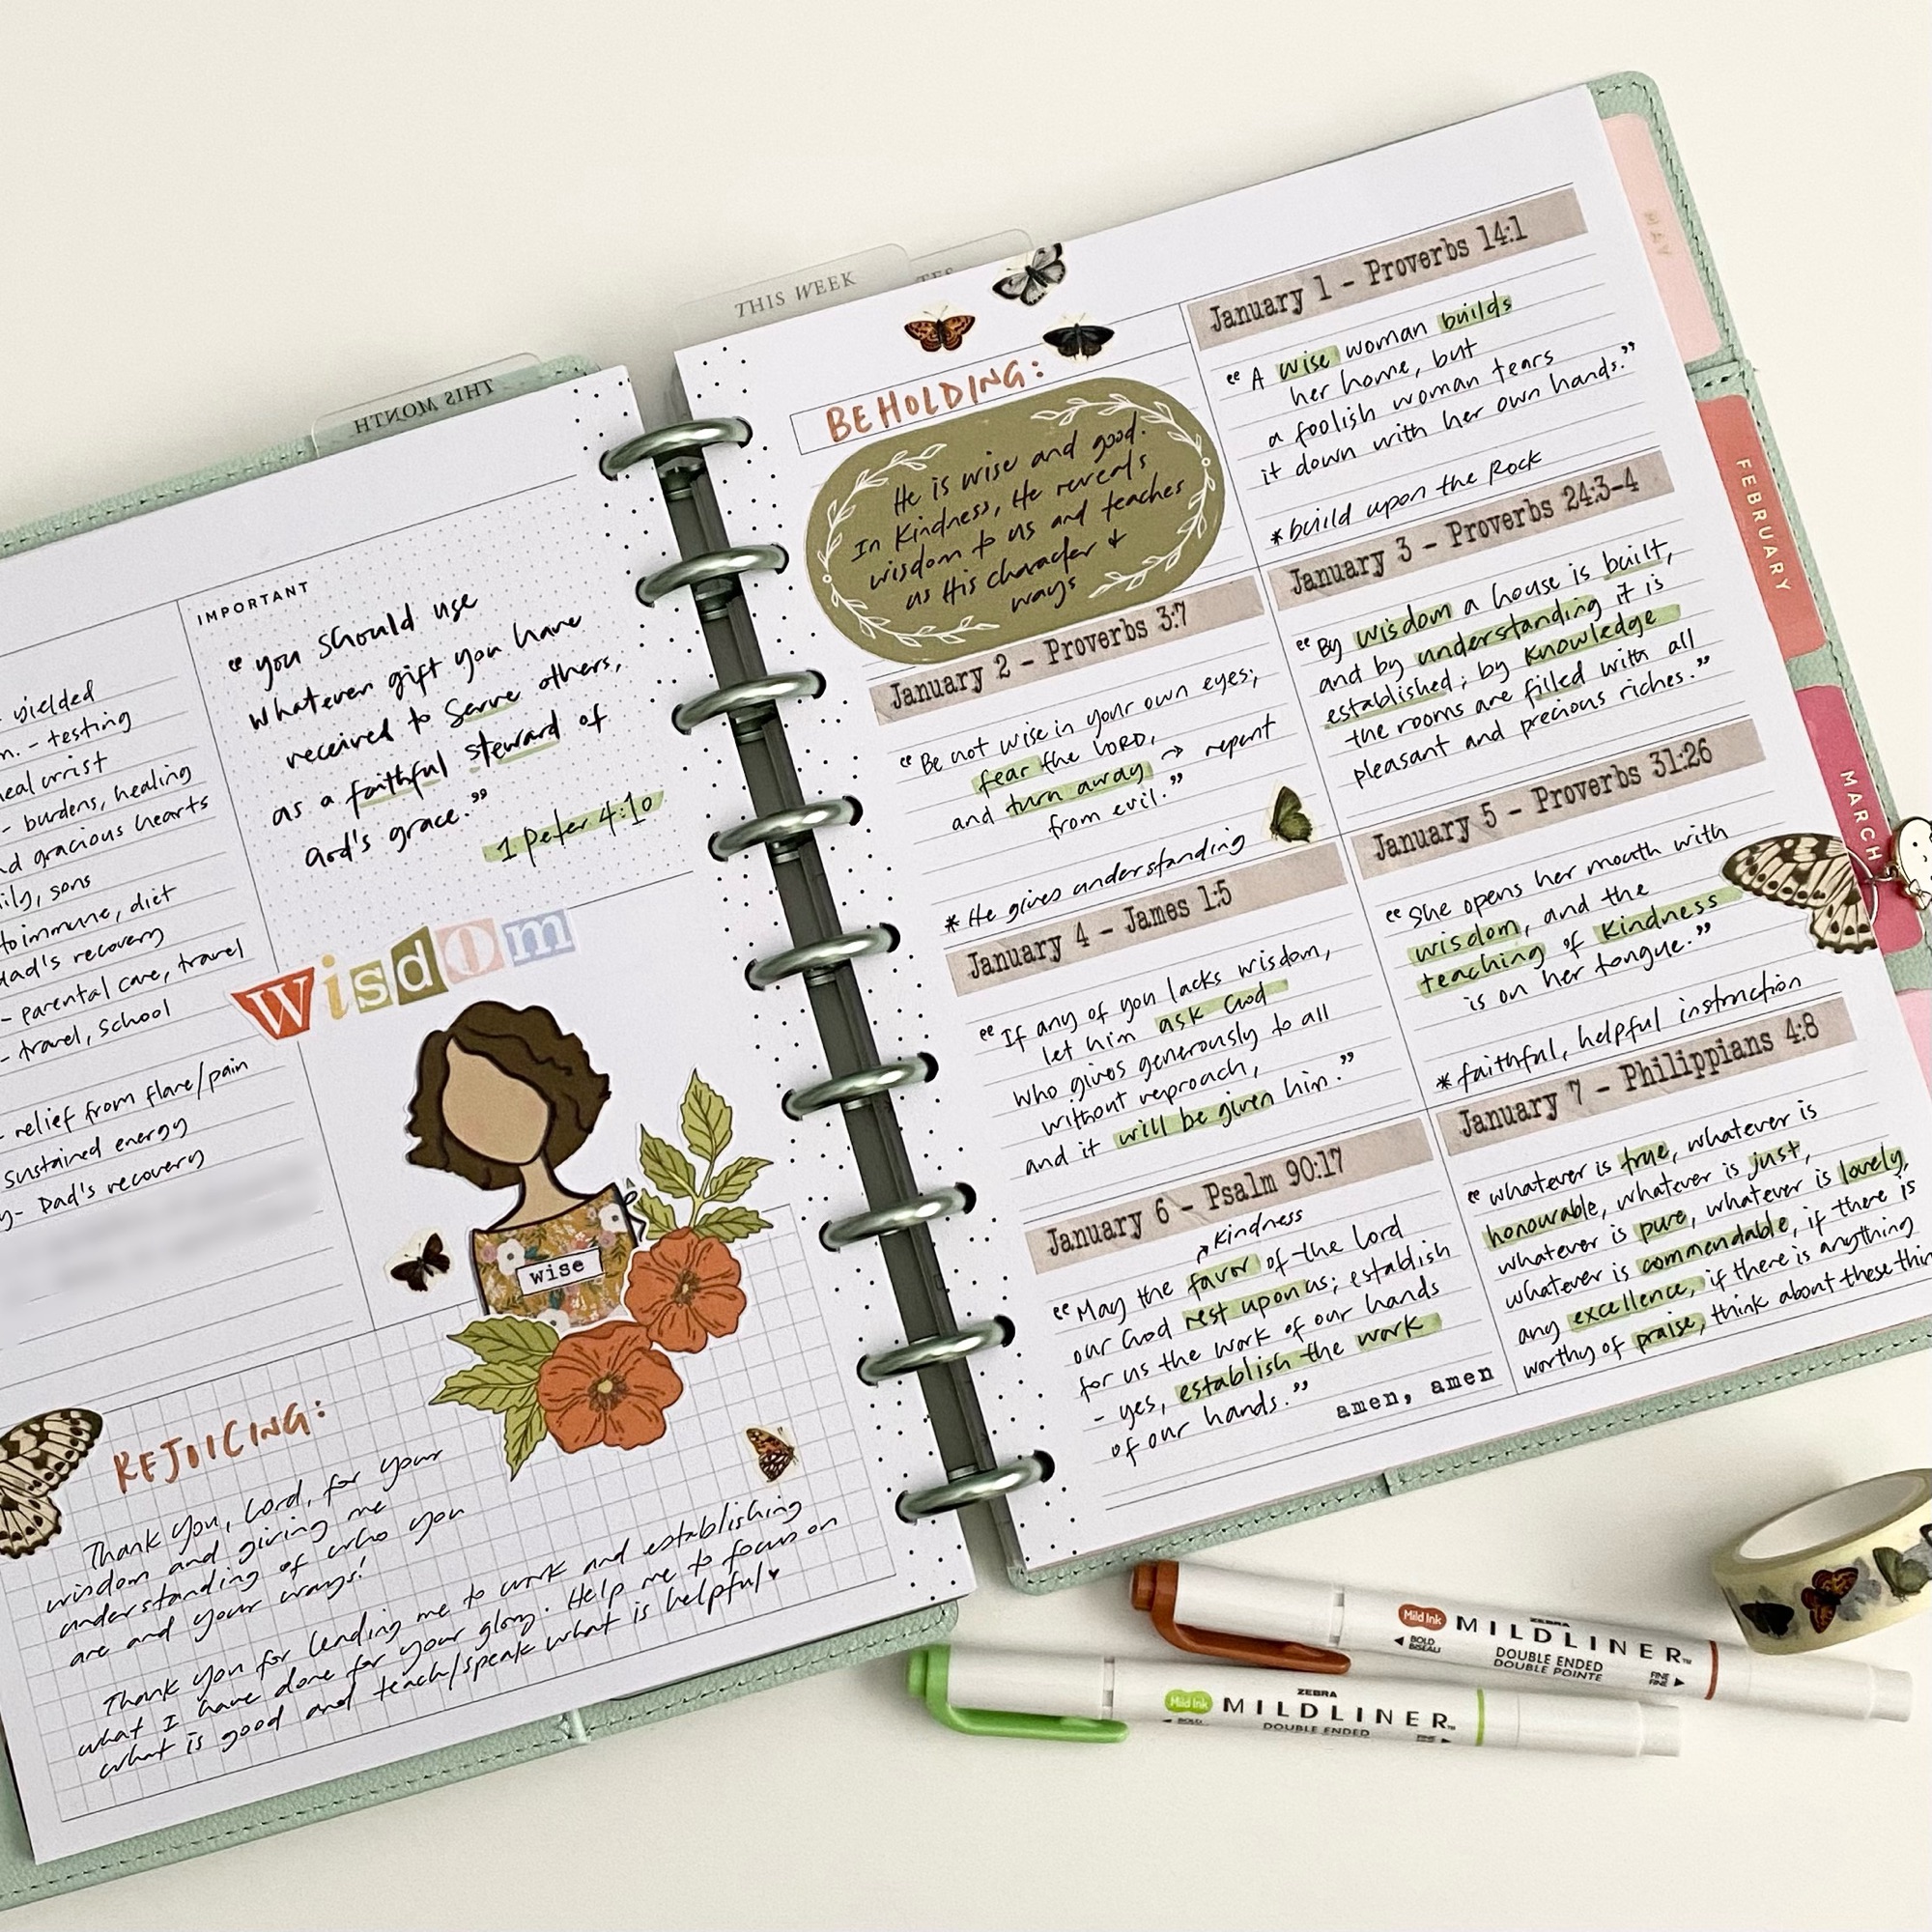 THIS MONTH
yielded
- testing
heal wrist
- burdens, healing
gracious hearts
sons
immune, diet
Dad's recovery
- parental care, travel
- travel, school
relief from flare/pain
sustained energy
- Dad's recovery
IMPORTANT
"you should use
whatever gift you have
received to serve others,
as a faithful steward of
God's grace."
1 Peter 4:10
Wisdom
wise
REJOICING:
Thank you, Lord, for your
wisdom and giving me
understanding of who you
are and your ways!
Thank you for lending me to work and establishing
what I have done for your glory. Help me to focus on
what is good and teach/speak what is helpful♥
THIS WEEK
BEHOLDING:
He is wise and good.
In Kindness, He reveals
wisdom to us and teaches
us His character +
ways
January 1 - Proverbs 14:1
"A wise woman builds
her home, but
a foolish woman tears
it down with her own hands."
*build upon the Rock
January 2 - Proverbs 3:7
"Be not wise in your own eyes;
fear the LORD,
and turn away → repent
from evil."
* He gives understanding
January 3 - Proverbs 24:3-4
"By wisdom a house is built,
and by understanding it is
established; by knowledge
the rooms are filled with all
pleasant and precious riches."
January 4 - James 1:5
"If any of you lacks wisdom,
let him ask God
who gives generously to all
without reproach,
and it will be given him."
January 5 - Proverbs 31:26
"She opens her mouth with
wisdom, and the
teaching of kindness
is on her tongue."
*faithful, helpful instruction
January 6 - Psalm 90:17
kindness
"May the favor of the Lord
our God rest upon us; establish
for us the work of our hands
- yes, establish the work
of our hands."
amen, amen
January 7 - Philippians 4:8
"whatever is true, whatever is
honourable, whatever is just,
whatever is pure, whatever is lovely,
whatever is commendable, if there is
any excellence, if there is anything
worthy of praise, think about these
MAY
FEBRUARY
MARCH
Mild Ink
ZEBRA
MILDLINER™
BOLD
BISEAU
DOUBLE ENDED
DOUBLE POINTE
FINE
FINE
Mild Ink
ZEBRA
MILDLINER™
BOLD
DOUBLE ENDED
FINE